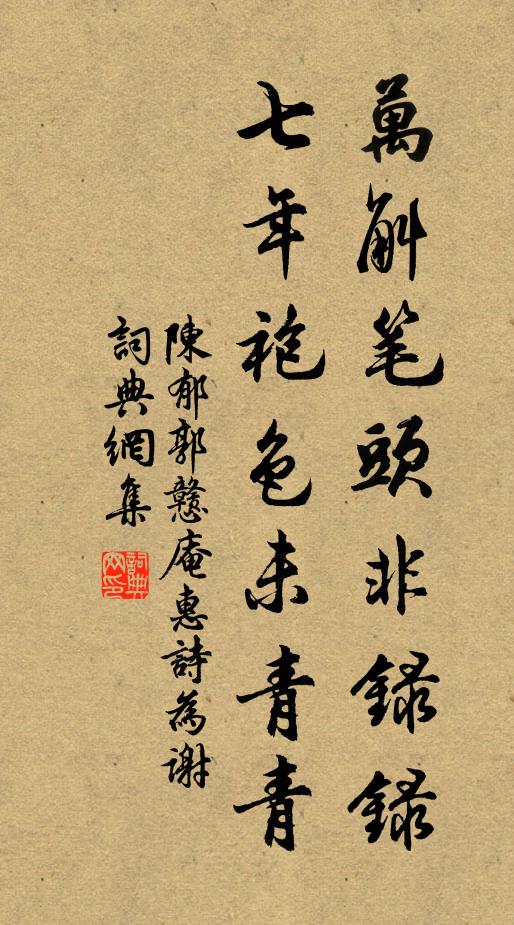 萬斛笔頭非録録
七年袍色未青青
陳郁郭戇庵惠詩為謝
詞典網集
詞典网印